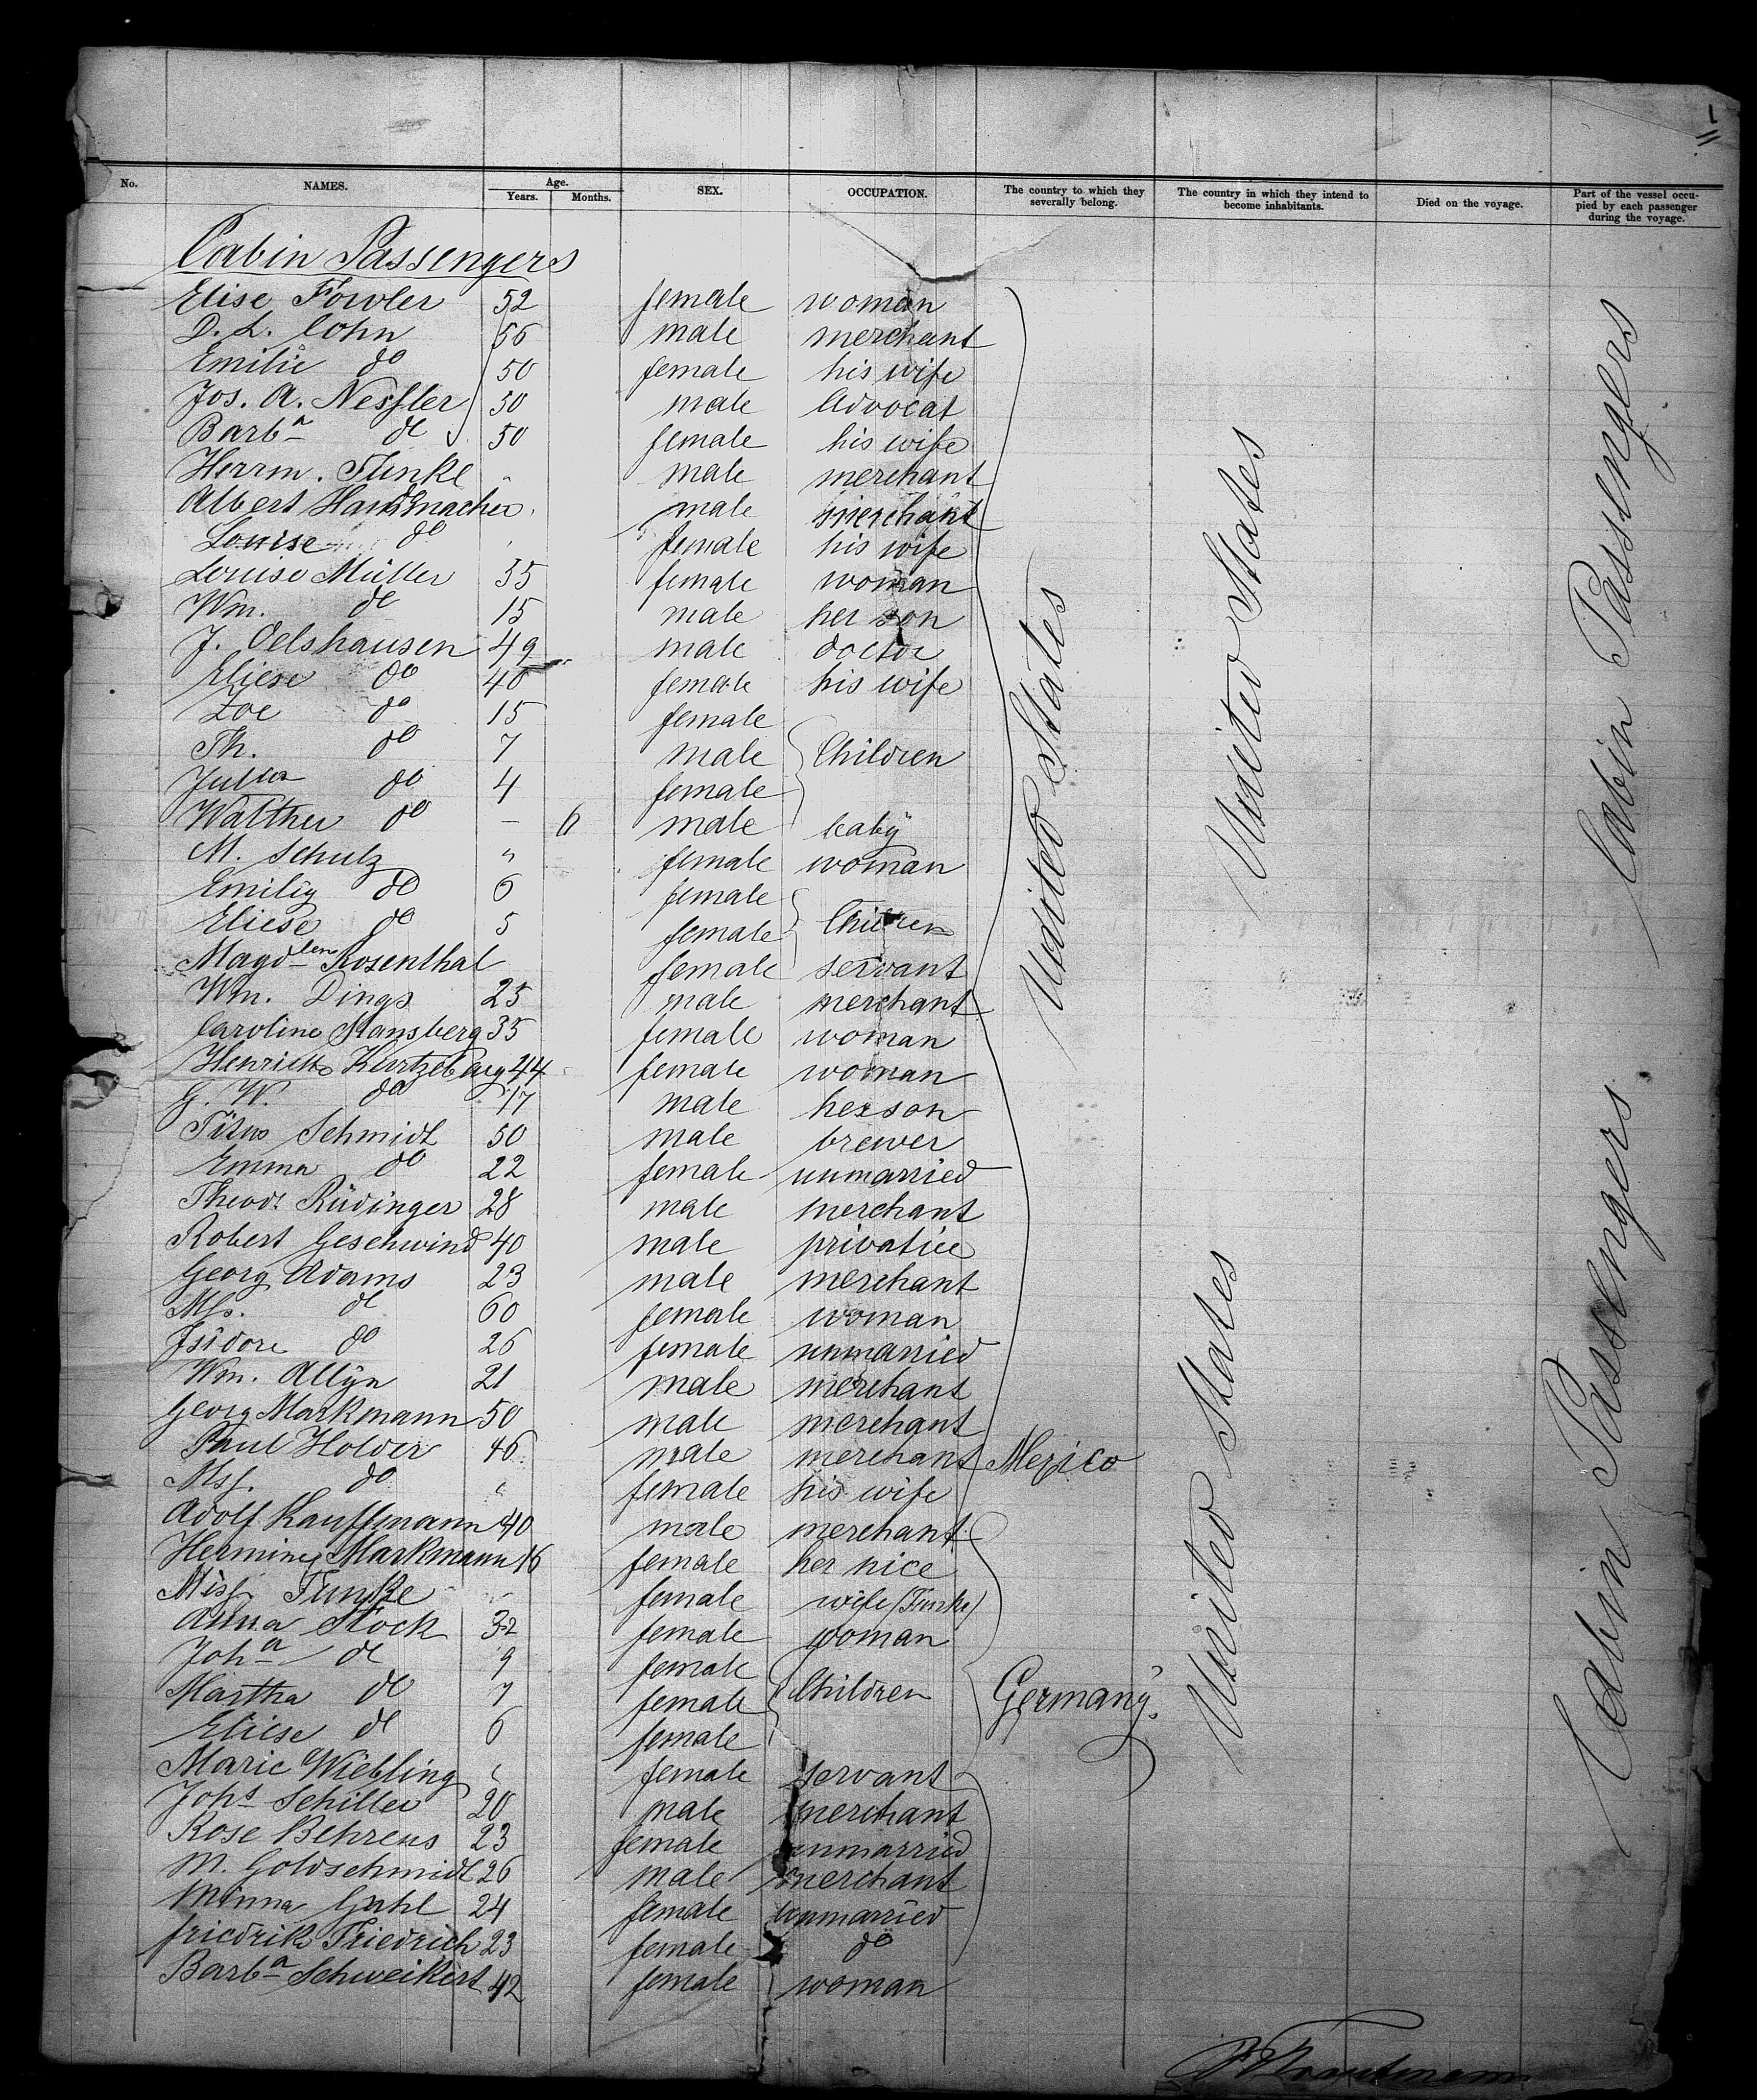 1
No. NAMES. Age. Years. Months. SEX. OCCUPATION. The country to which they severally belong. The country in which they intend to become inhabitants. Died on the voyage. Part of the vessel occupied by each passenger during the voyage.
Cabin Passengers
Elise Fowler 52 female woman
D. L. Cohn 56 male merchant
Emilie do 50 female his wife
Jos. A. Nessler 50 male Advocat
Barba do 50 female his wife
Herrm. Funke " male merchant
Albert Handmacher male merchant
Louise do female his wife
Louise Müller 35 female woman
Wm. do 15 male her son
J. Oelshausen 49 male doctor
Eliese do 40 female his wife
Zoe do 15 female
Th. do 7 male Children
Julia do 4 female
Walther do — 6 male baby
M. Schulz " female woman
Emilig do 6 female
Eliese do 5 female Children
Magdlen Rosenthal female servant
Wm. Dings 25 male merchant
Caroline Mansberg 35 female woman
Henriette Kurtzeborg 44 female woman
G. W. do 17 male her son
Titus Schmidt 50 male brewer
Emma do 22 female unmarried
Theodr Rüdinger 28 male merchant
Robert Geschwind 40 male privatier
Georg Adams 23 male merchant
Mss. do 60 female woman
Isidore do 26 female unmarried
Wm. Allyn 21 male merchant
Georg Markmann 50 male merchant
Paul Holder 46 male merchant Mexico
Mss. do " female his wife
Adolf Kauffmann 40 male merchant
Hermine Markmann 16 female her nice
Miss Funke " female wife (Funke)
Anna Stock 32 female woman
Joha do 9 female
Martha do 7 female Children Germany.
Eliese do 6 female
Marie Wiebling " female servant
Johs Schiller 20 male merchant
Rose Behrens 23 female unmarried
M. Goldschmidt 26 male merchant
Minna Gahl 24 female unmarried
friedrike Friedrich 23 female do
Barba Schweikert 42 female woman
United States
United States
United States
Cabin Passengers
Cabin Passengers